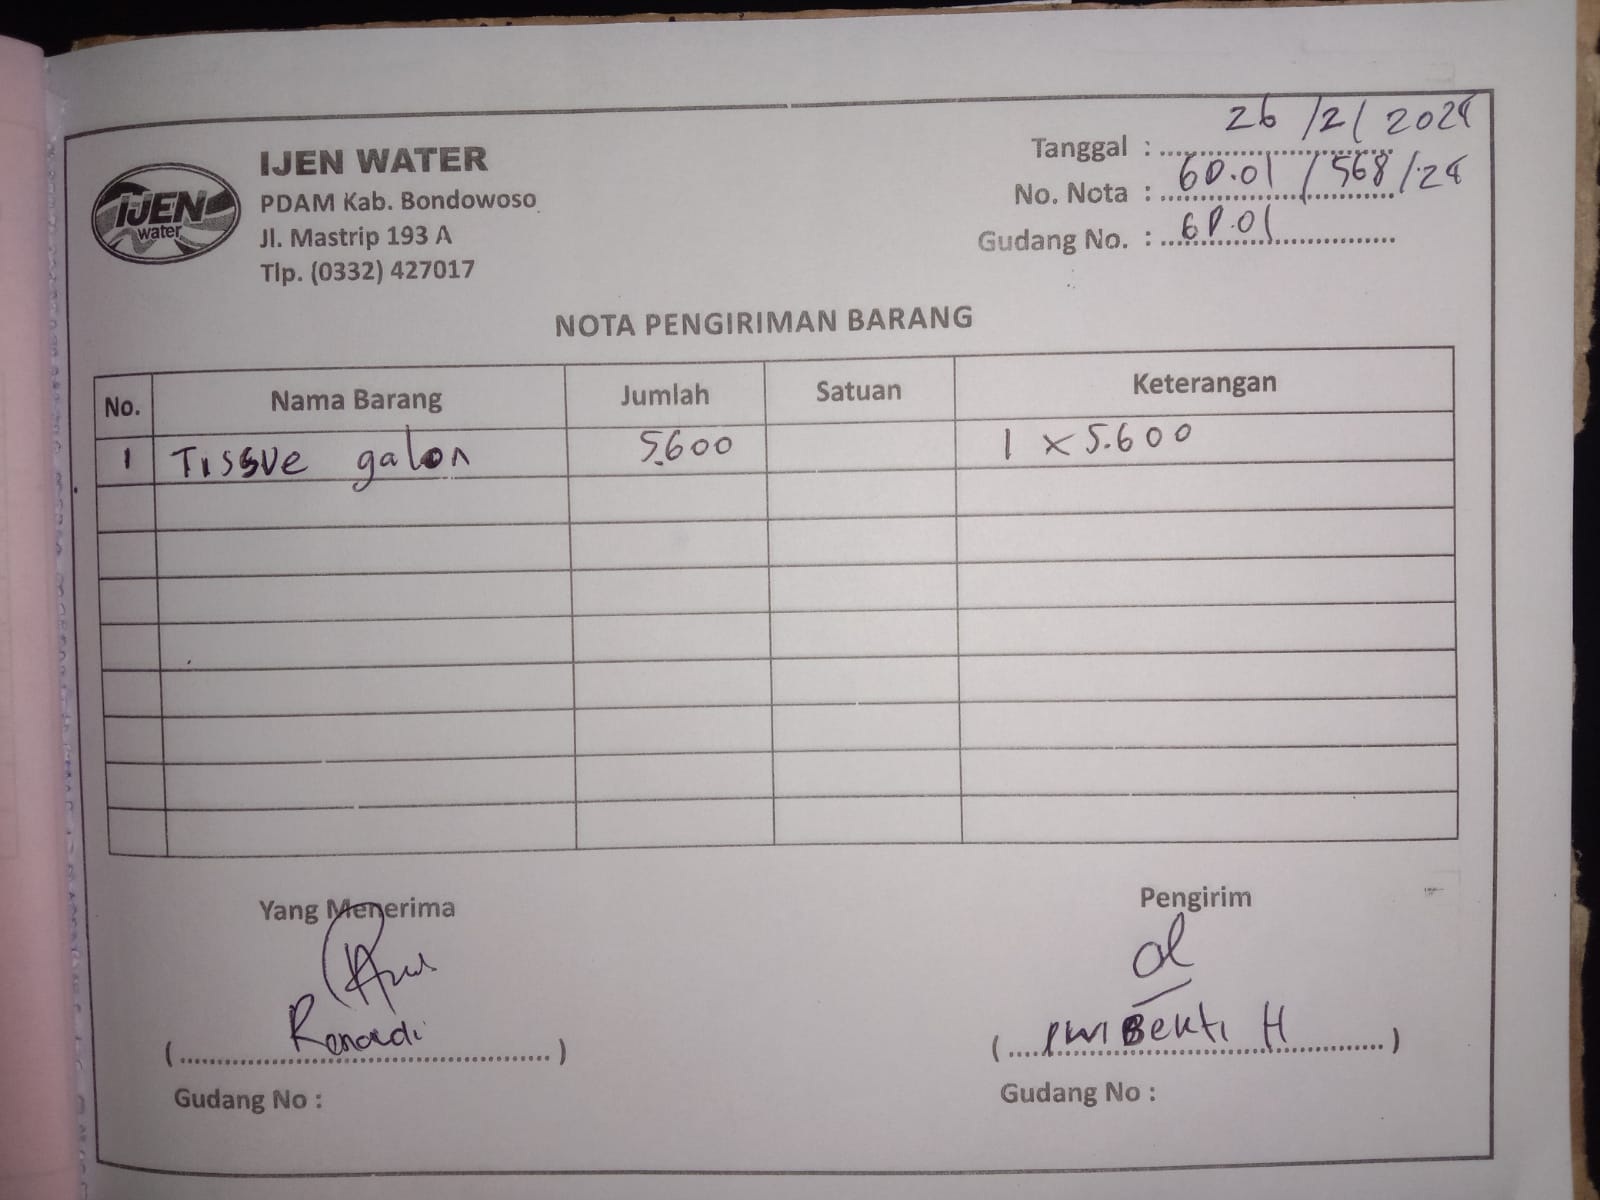 IJEN
water
IJEN WATER
PDAM Kab. Bondowoso
Jl. Mastrip 193 A
Tlp. (0332) 427017
Tanggal : 26/2/2024
No. Nota : 60.01/568/24
Gudang No. : 60.01
NOTA PENGIRIMAN BARANG
No. Nama Barang Jumlah Satuan Keterangan
1 Tissue galon 5.600 1 x 5.600
Yang Menerima Pengirim
( Renaldi ) ( Dwi Bekti H )
Gudang No : Gudang No :